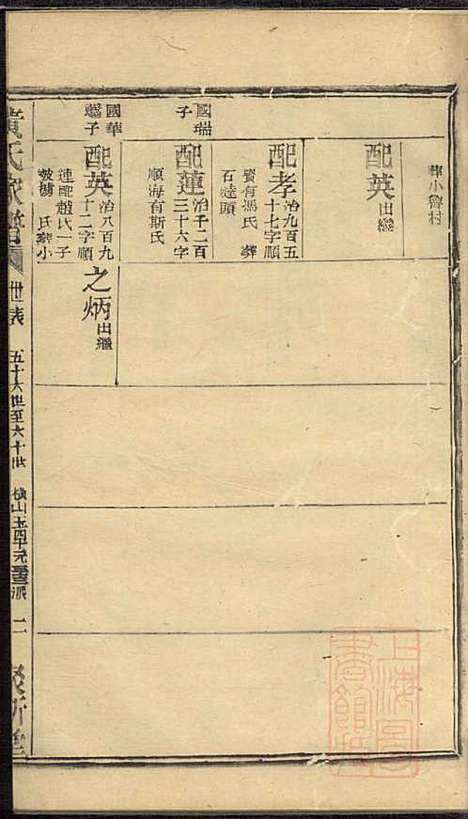 葬小魯村
配英出繼
配孝治九百五
十七字順
賓有馮氏葬
石邊頭
國瑞
子
配蓮治千二百
三十六字
順海有斯氏
國華
繼子
配英治八百九
十二字順
連配趙氏一子
氏葬小
之炳出繼
黃氏家譜
世表
五十六世至六十世
上海圖書館藏